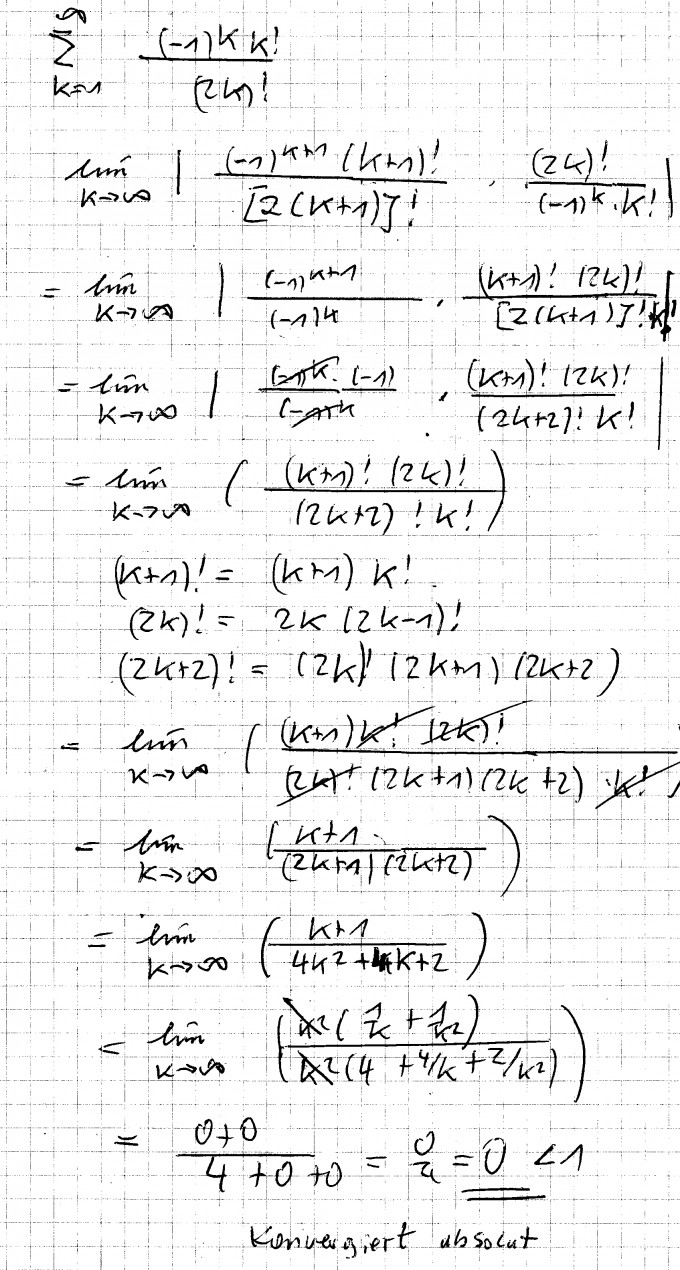 ∑ k=1 ∞ (-1)^k k! / (2k)!
lim k→∞ | (-1)^{k+1} (k+1)! / [2(k+1)]! · (2k)! / (-1)^k · k! |
= lim k→∞ | (-1)^{k+1} / (-1)^k · (k+1)! (2k)! / [2(k+1)]! k! |
= lim k→∞ | (-1)^k · (-1) / (-1)^k · (k+1)! (2k)! / (2k+2)! k! |
= lim k→∞ ( (k+1)! (2k)! / (2k+2)! k! )
(k+1)! = (k+1) k!
(2k)! = 2k (2k-1)!
(2k+2)! = (2k)! (2k+1) (2k+2)
= lim k→∞ ( (k+1) k! (2k)! / (2k)! (2k+1) (2k+2) · k! )
= lim k→∞ ( k+1 / (2k+1) (2k+2) )
= lim k→∞ ( k+1 / 4k² + 4k + 2 )
= lim k→∞ ( k² (1/k + 1/k²) / k² (4 + 4/k + 2/k²) )
= 0+0 / 4+0+0 = 0/4 = 0 < 1
Konvergiert absolut